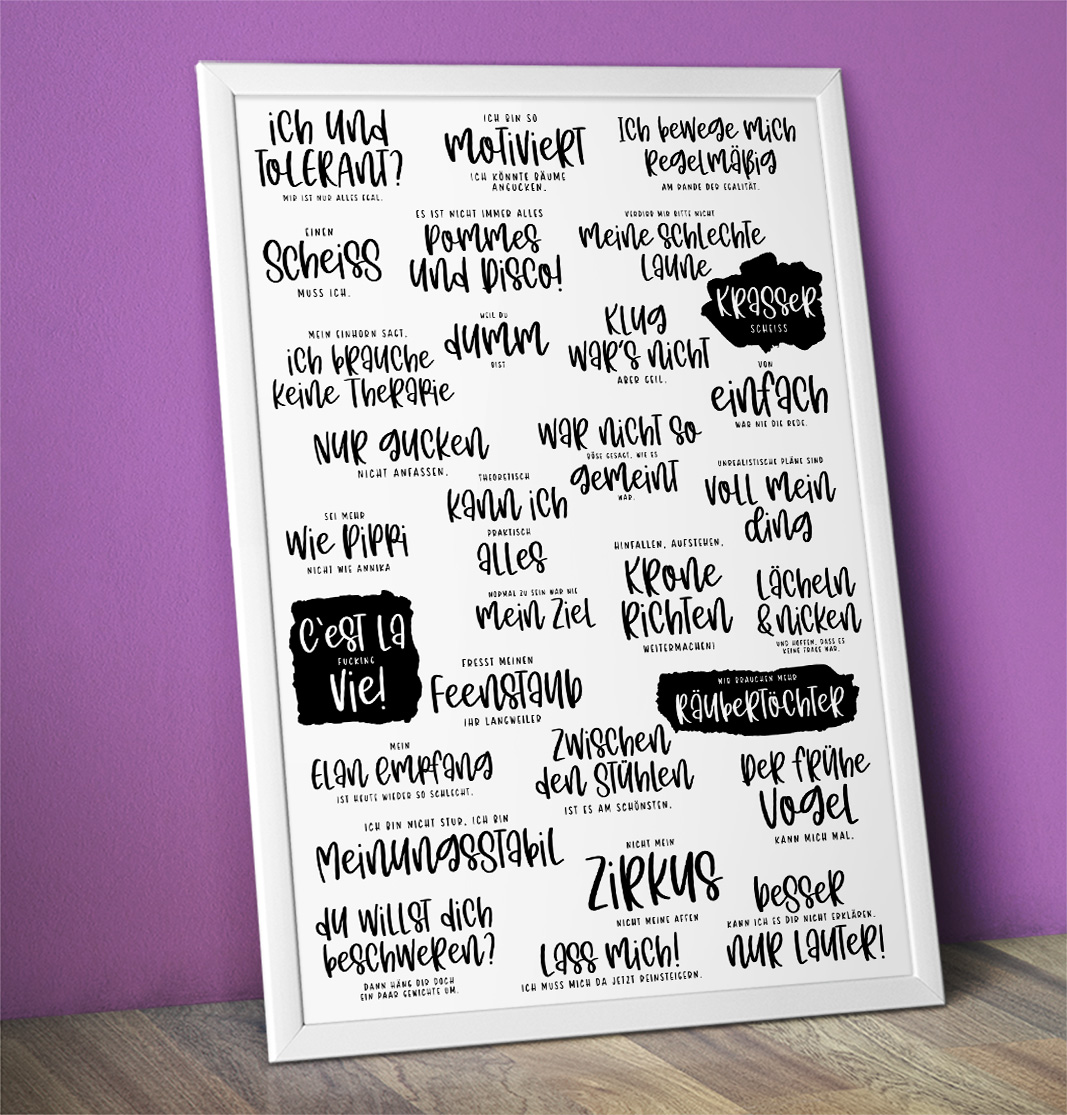 ich und
TOLERANT?
MIR IST NUR ALLES EGAL.
ICH BIN SO
MOTIVIERT
ICH KÖNNTE BÄUME
ANGUCKEN.
Ich bewege mich
Regelmäßig
AM RANDE DER EGALITÄT.
EINEN
Scheiss
MUSS ICH.
ES IST NICHT IMMER ALLES
Pommes
und Disco!
VERDIRB MIR BITTE NICHT
meine schlechte
Laune
KRASSER
SCHEISS
MEIN EINHORN SAGT,
ich brauche
keine Therapie
WEIL DU
dumm
BIST
Klug
war's nicht
ABER GEIL.
VON
einfach
WAR NIE DIE REDE.
Nur gucken
NICHT ANFASSEN.
War nicht so
BÖSE GESAGT, WIE ES
gemeint
WAR.
THEORETISCH
kann ich
PRAKTISCH
alles
UNREALISTISCHE PLÄNE SIND
voll mein
ding
SEI MEHR
wie Pippi
NICHT WIE ANNIKA
NORMAL ZU SEIN WAR NIE
mein Ziel
HINFALLEN, AUFSTEHEN,
Krone
Richten
WEITERMACHEN!
Lächeln
& nicken
UND HOFFEN, DASS ES
KEINE FRAGE WAR.
C`est la
FUCKING
Vie!
FRESST MEINEN
Feenstaub
IHR LANGWEILER
WIR BRAUCHEN MEHR
Räubertöchter
MEIN
Elan empfang
IST HEUTE WIEDER SO SCHLECHT.
Zwischen
den Stühlen
IST ES AM SCHÖNSTEN.
Der frühe
Vogel
KANN MICH MAL.
ICH BIN NICHT STUR, ICH BIN
Meinungsstabil
NICHT MEIN
ZIRKUS
NICHT MEINE AFFEN
besser
KANN ICH ES DIR NICHT ERKLÄREN.
nur lauter!
du willst dich
beschweren?
DANN HÄNG DIR DOCH
EIN PAAR GEWICHTE UM.
Lass mich!
ICH MUSS MICH DA JETZT REINSTEIGERN.